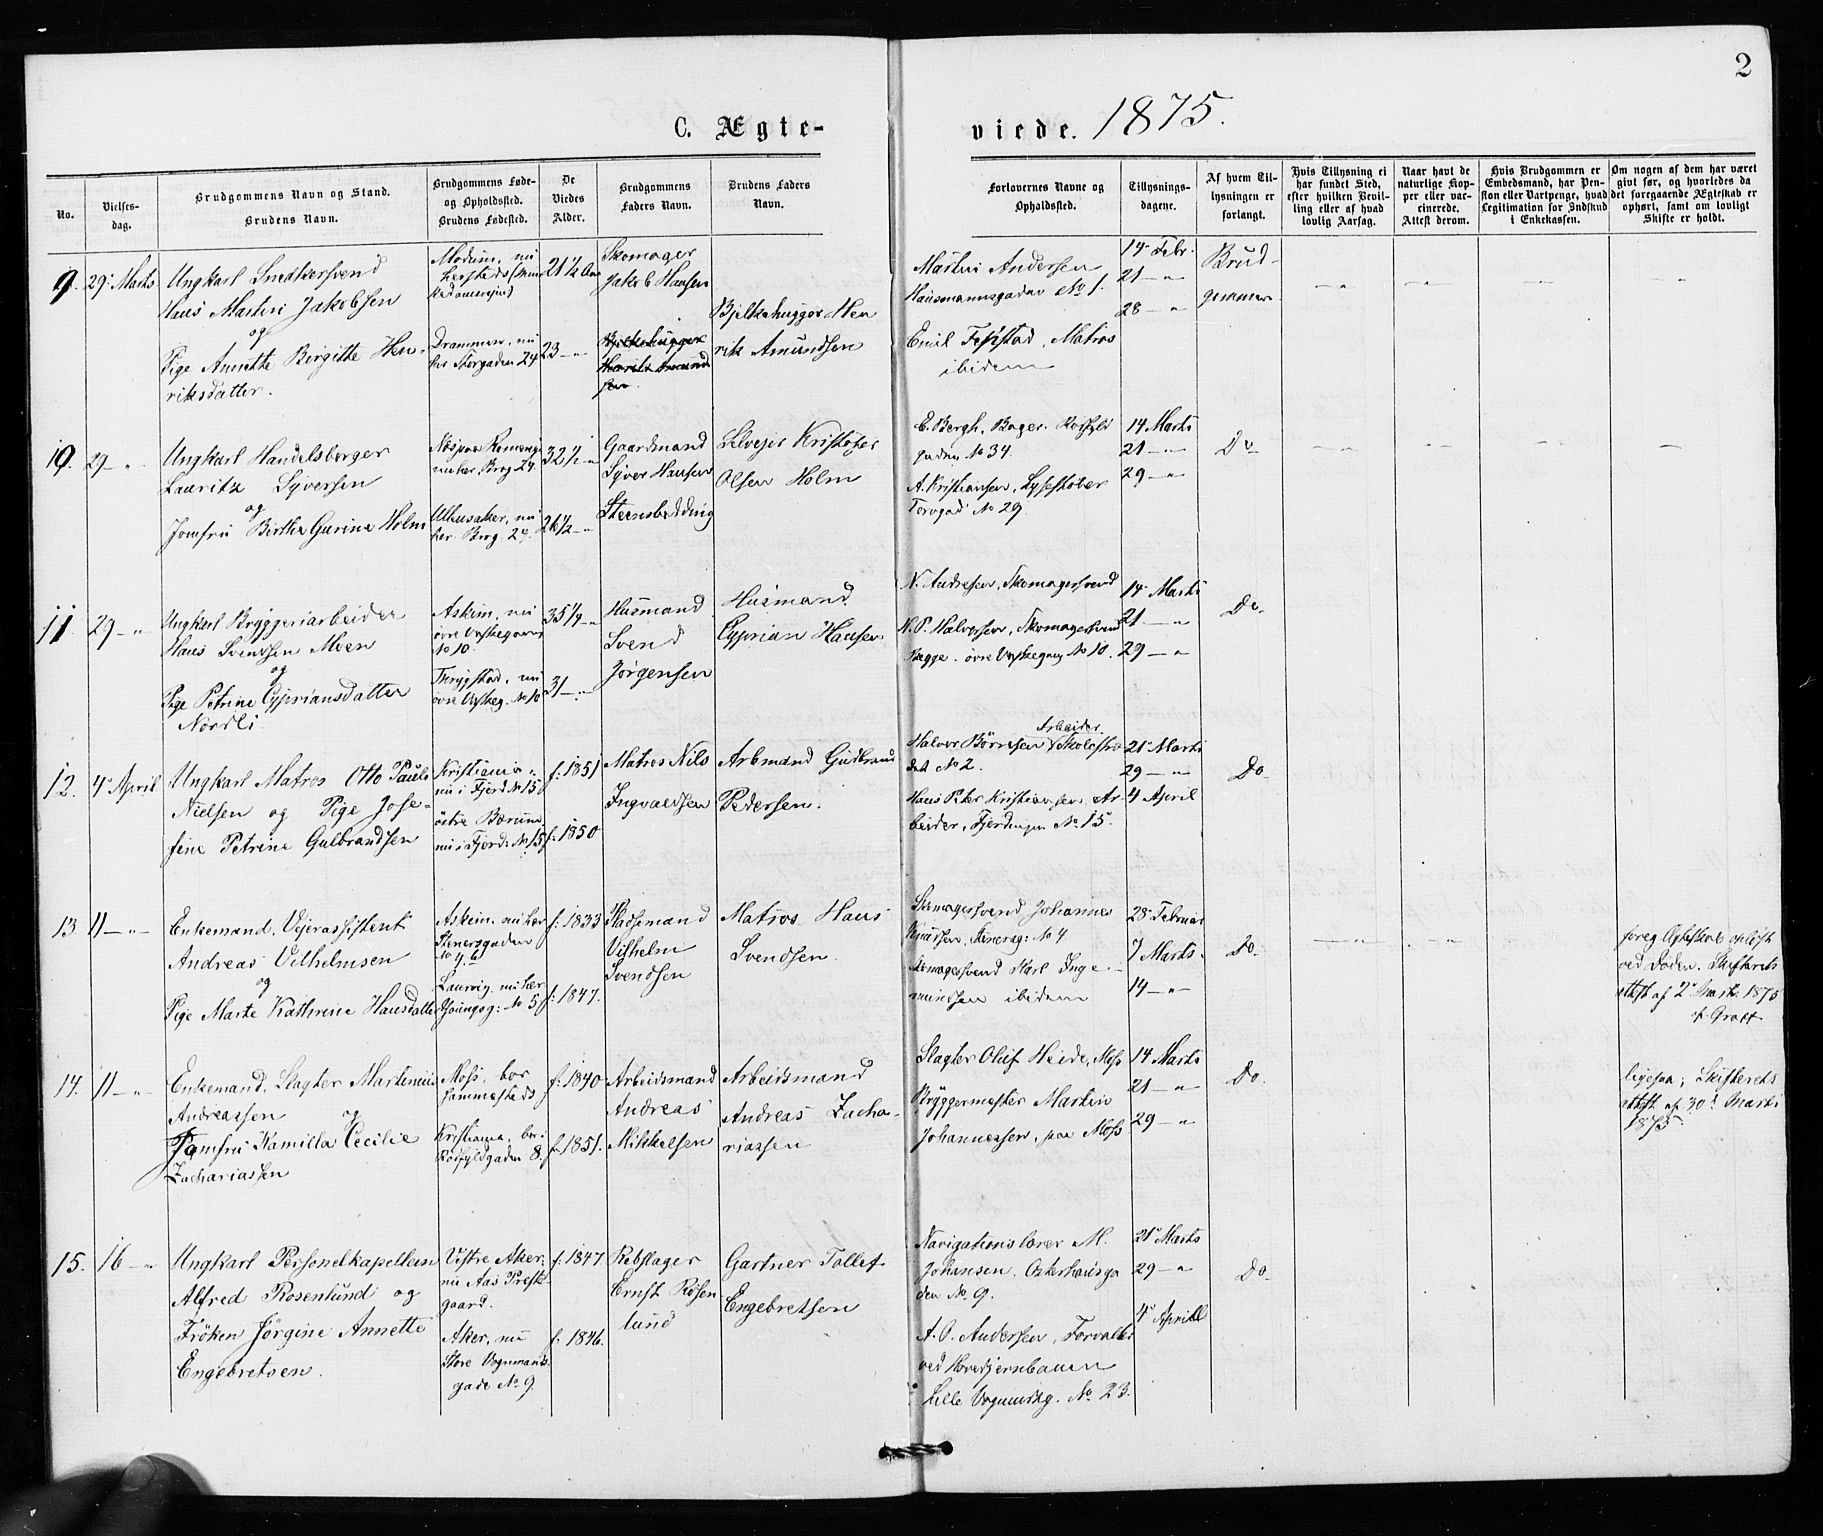 2
C. Ægte-
viede. 1875.
No.
Vielses-
dag.
Brudgommens Navn og Stand.
Brudens Navn.
Brudgommens Føde-
og Opholdssted.
Brudens Fødested.
De
Viedes
Alder.
Brudgommens
Faders Navn.
Brudens Faders
Navn.
Forlovernes Navne og
Opholdssted.
Tillysnings-
dagene.
Af hvem Til-
lysningen er
forlangt.
Hvis Tillysning ei
har fundet Sted,
efter hvilken Bevil-
ling eller af hvad
lovlig Aarsag.
Naar havt de
naturlige Kop-
per eller vac-
cinerede.
Attest derom.
Hvis Brudgommen er
Embedsmand, har Pen-
sion eller Vartpenge, hvad
Legitimation for Indskud
i Enkekassen.
Om nogen af dem har været
givt før, og hvorledes da
det foregaaende Ægteskab er
ophørt, samt om lovligt
Skifte er holdt.
9. 29. Marts
Ungkarl Snedkersvend
Hans Martin Jakobsen
og
Pige Annette Birgitte Hen-
riksdatter.
Modum, nu
Drammen, nu
her Storgaden 24
21 1/2 Aar
23 — "
Skomager
Jakob Hansen
Bjelkehugger Hen
rik Amundsen
Martin Andersen
Hausmannsgaden No 1.
Emil Fepstad, Matros
ibidem
14 Febr.
21 — "
28 — "
Brud-
gommen
10 29 — "
Ungkarl Handelsborger
Lauritz Syversen
og
Jomfru Birthe Gurine Holm
nu her Brog 24.
Ullensaker, nu
her Brog. 24.
32 1/2 — "
26 1/2 — "
Gaardmand
Syver Hansen
Steensbedding
Selveier Kristofer
Olsen Holm
E. Bergh, Bager,
gaden No 34
A. Kristiansen, Lysestøber
Torvgad No 29.
14 Marts
21 — "
29 — "
Do
11 29 — "
Ungkarl Bryggeriarbeider
Hans Svendsen Moen
og
Pige Petrine Cypriansdatter
Nordli.
Askim, nu
øvre
No 10.
Trygstad, nu
øvre No 10
35 1/4 — "
31 — "
Husmand
Svend
Jørgensen
Husmand
Cyprian Hansen
N. Andresen, Skomagersvend
N. P. Halvorsen, Skomagersvend
Begge No 10.
14 Marts
21 — "
29 — "
Do
12. 4 April
Ungkarl Matros Otto Pauls
Nielsen og Pige Jose-
fine Petrine Gulbrandsen
Kristiania,
nu i Fjerd No 15
østre Bærum
nu i Fjerd: No 15
f. 1851
f. 1850
Matros Nils
Ingvaldsen
Arbmand Gudbrand
Pedersen.
Arbeider
Halvor Børresen Skolestræ
det No 2.
Hans Peter Kristiansen, Ar
beider, Fjerdingen No 15.
21 Marts
29 — "
4 April
Do
13 11 — "
Enkemand, Vejerassistent
Andreas Vilhelmsen
og
Pige Marte Kathrine Hansdatter
Askim, nu her
Stenersgaden
No 4 b
Laurvig, nu her
Youngsg: No 5
f. 1833
f. 1847.
Pladsemand
Vilhelm
Svendsen
Matros Hans
Svendsen.
Skomagersvend Johannes
Knutsen, Stenersg: No 4
Skomagersvend Karl Inge-
mundsen ibidem
28 Februar
7 Marts
14 — "
Do
foreg Ægteskab opløst
ved Døden. Skifterets
attest af 2 Marts 1875
14. 11 — "
Enkemand, Slagter Martinius
Andreassen og
Jomfru Kamilla Cecilie
Zachariassen
Moss, bor
sammesteds
Kristiania, bor i
Rødfyldgaden 8.
f. 1840
f. 1851.
Arbeidsmand
Andreas
Mikkelsen
Arbeidsmand
Andreas Zacha-
riassen
Slagter Oluf Heide, Moss
Bryggermester Martin
Johannessen, paa Moss
14 Marts
21 — "
29 — "
Do.
ligesaa; Skifterets
attest af 30 Marts
1875
15. 16 — "
Ungkarl Personelkapellan
Alfred Rosenlund og
Frøken Jørgine Annette
Engebretsen.
Vestre Aker,
nu Aas Præste
gaard.
Aker, nu
Store Vognmands
gade No 9.
f. 1847
f. 1846.
Rebslager
Ernst Rosen
lund
Gartner Tollef
Engebretsen
Navigationslærer M.
Johansen, Osterhausga
den No 9.
A. O. Andersen, Forvalter
ved Hovedjernbanen
Lille Vognmdsg. No 23.
21 Marts
29 — "
4 Aprill
Do